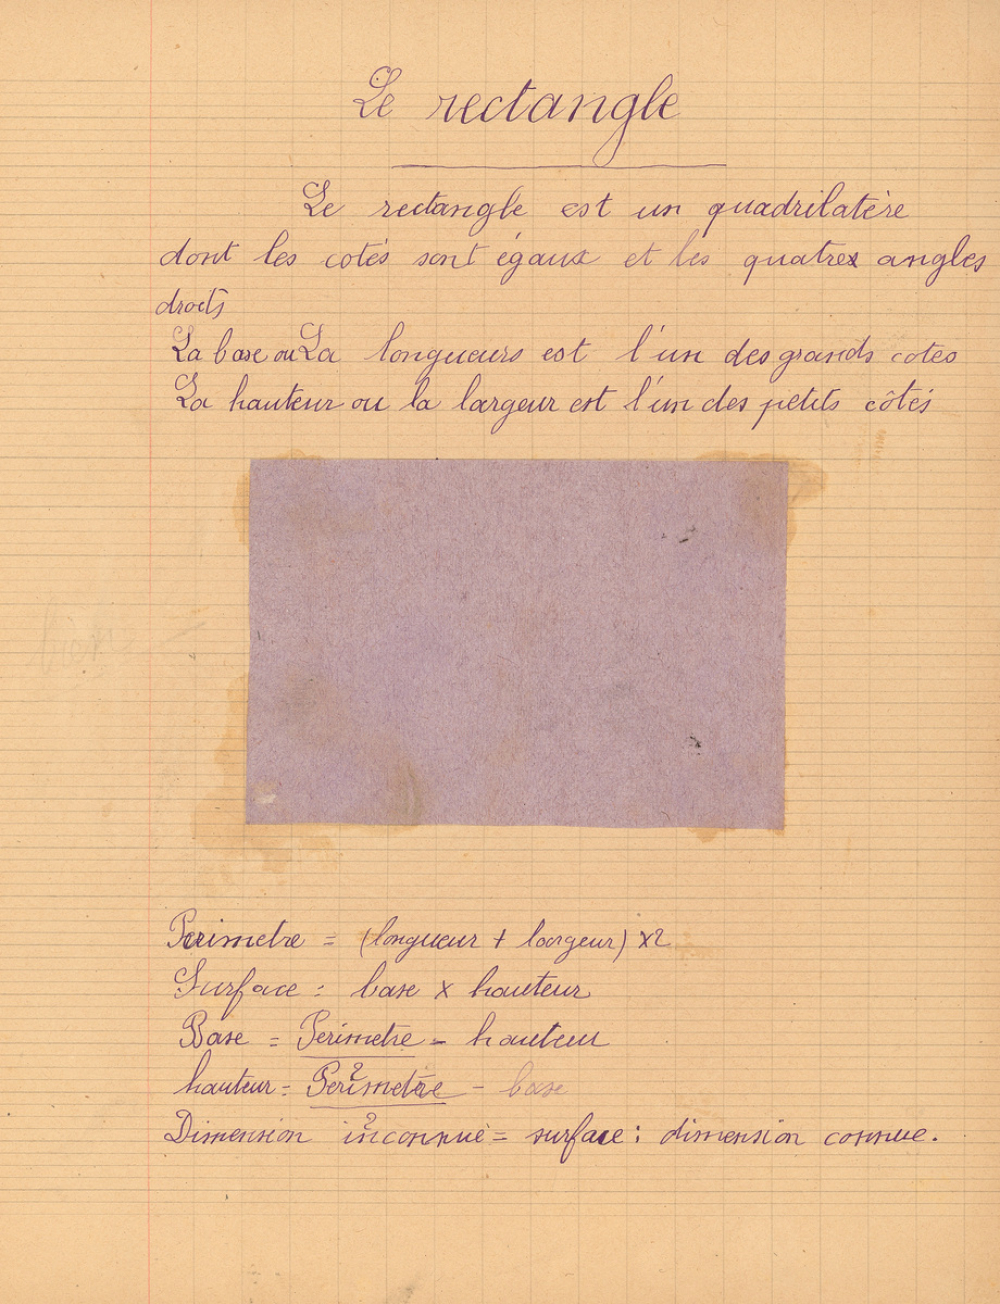 Le rectangle
Le rectangle est un quadrilatère
dont les cotés sont égaux et les quatres angles
droits
La base ou La longueurs est l'un des grands cotes
La hauteur ou la largeur est l'un des petits côtés
Perimetre = (longueur + largeur) x2
Surface = base x hauteur
Base = Perimetre - hauteur
2
hauteur = Perimetre - base
2
Dimension inconnue = surface : dimension connue.